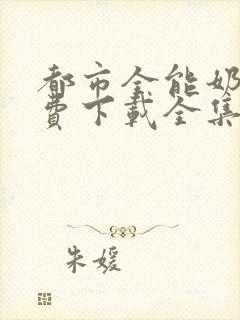 都市全能奶
费下载全集
朱媛